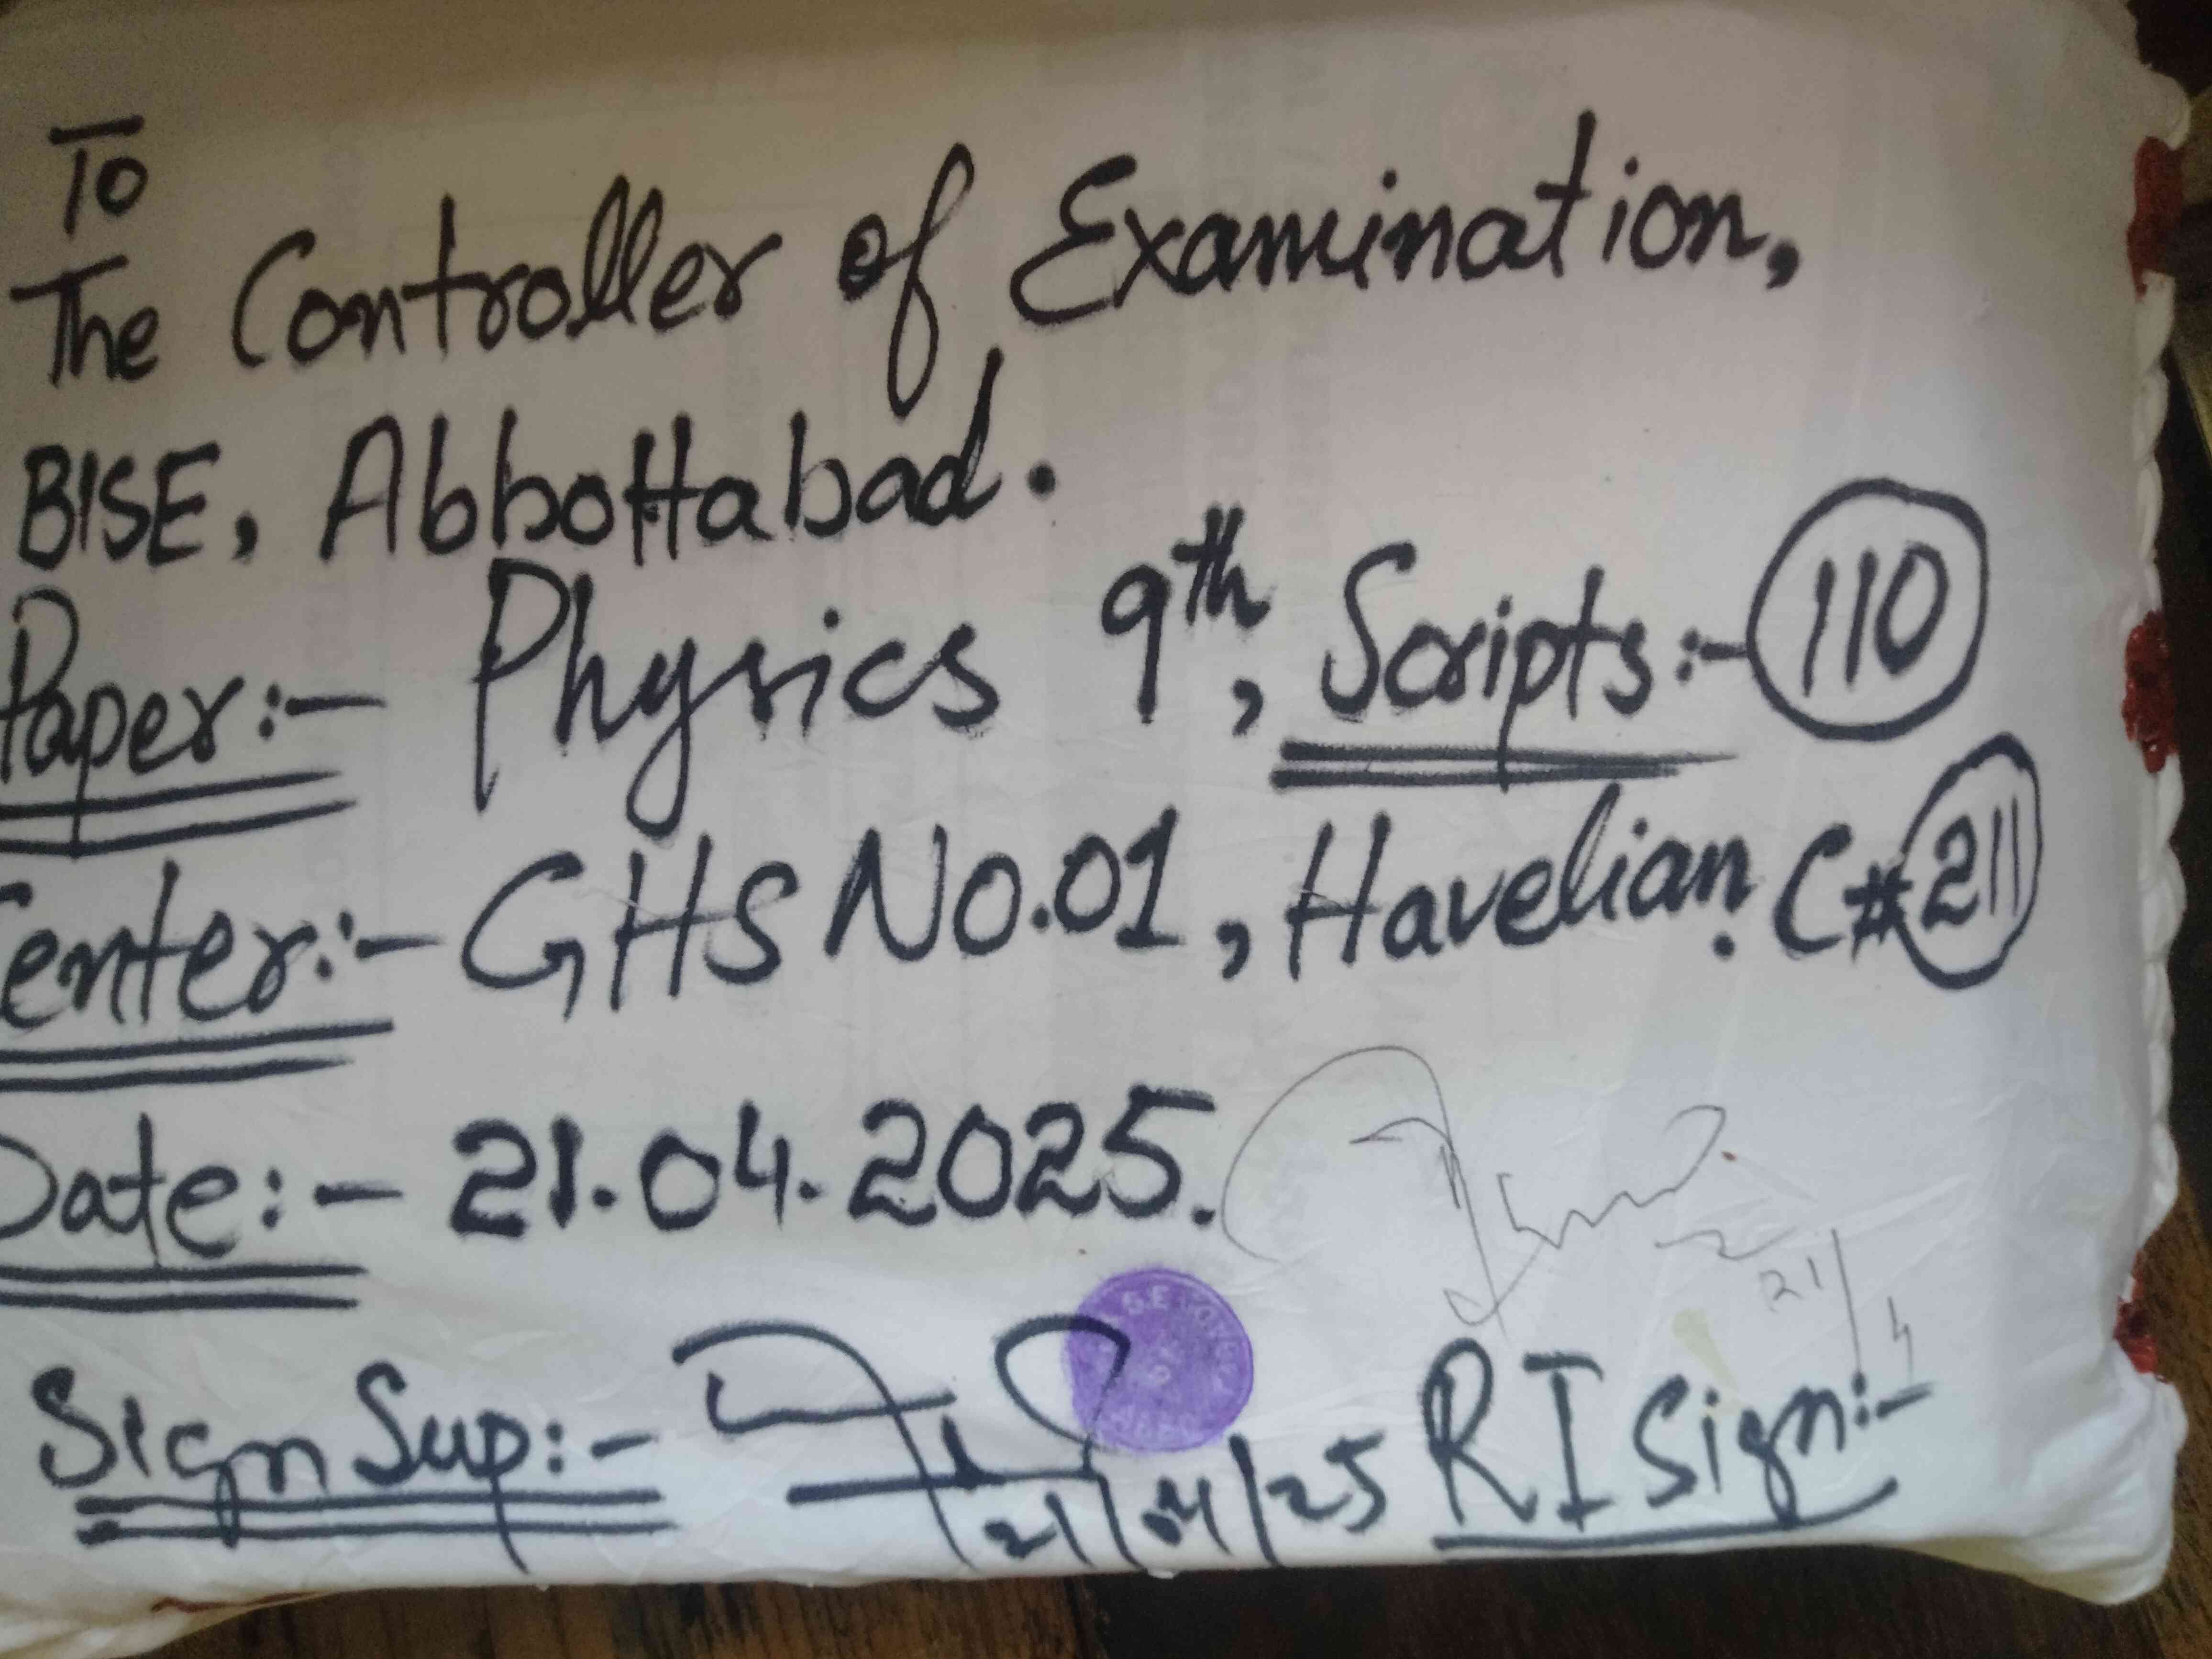 To
The Controller of Examination,
BISE, Abbottabad.
Paper:- Physics 9th, Scripts:- 110
Center:- GHS No.01, Havelian. C# 211
Date:- 21.04.2025.
21/4
Sign Sup:- 21/04/25 RI Sign:-